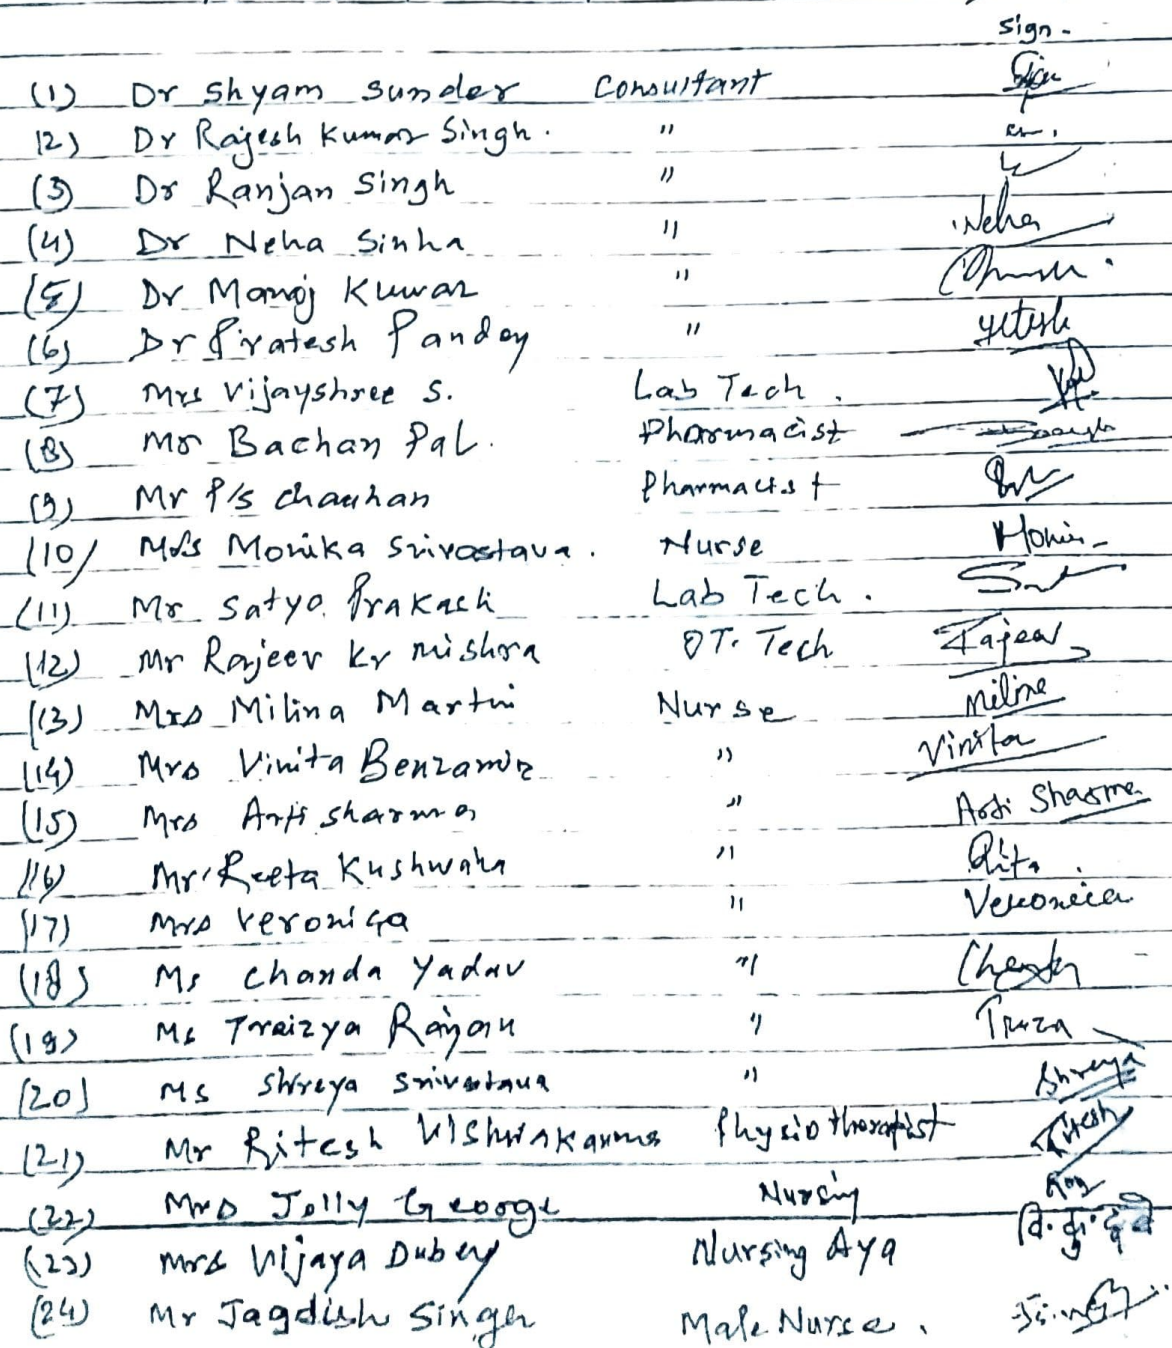 Sign -
(1) Dr Shyam Sunder Consultant
(2) Dr Rajesh Kumar Singh . "
(3) Dr Ranjan Singh "
(4) Dr Neha Sinha " Neha
(5) Dr Manoj Kuwar "
(6) Dr Piratesh Pandey " yetish
(7) Mrs Vijayshree S. Lab Tech .
(8) Mr Bachan Pal . Pharmacist
(9) Mr P/S Chauhan Pharmacist
(10) Mrs Monika Srivastava . Nurse
(11) Mr Satya Prakash Lab Tech .
(12) Mr Rajeev Kr Mishra OT. Tech Rajeev
(13) Mrs Milina Martin Nurse Miline
(14) Mrs Vinita Benzamin " Vinita
(15) Mrs Arti Sharma " Arti Sharma
(16) Mr. Reeta Kushwaha " Rita .
(17) Mrs Veronica " Veronica
(18) Ms Chanda Yadav "
(19) Ms Traizya Rayan "
(20) Ms Shreya Srivastava " Shreya
(21) Mr Ritesh Vishwakarma Physiotherapist Ritesh
(22) Mrs Jolly George Nursing
(23) Mrs Vijaya Dubey Nursing Aya वि. कु. दुबे
(24) Mr Jagdish Singh Male Nurse .